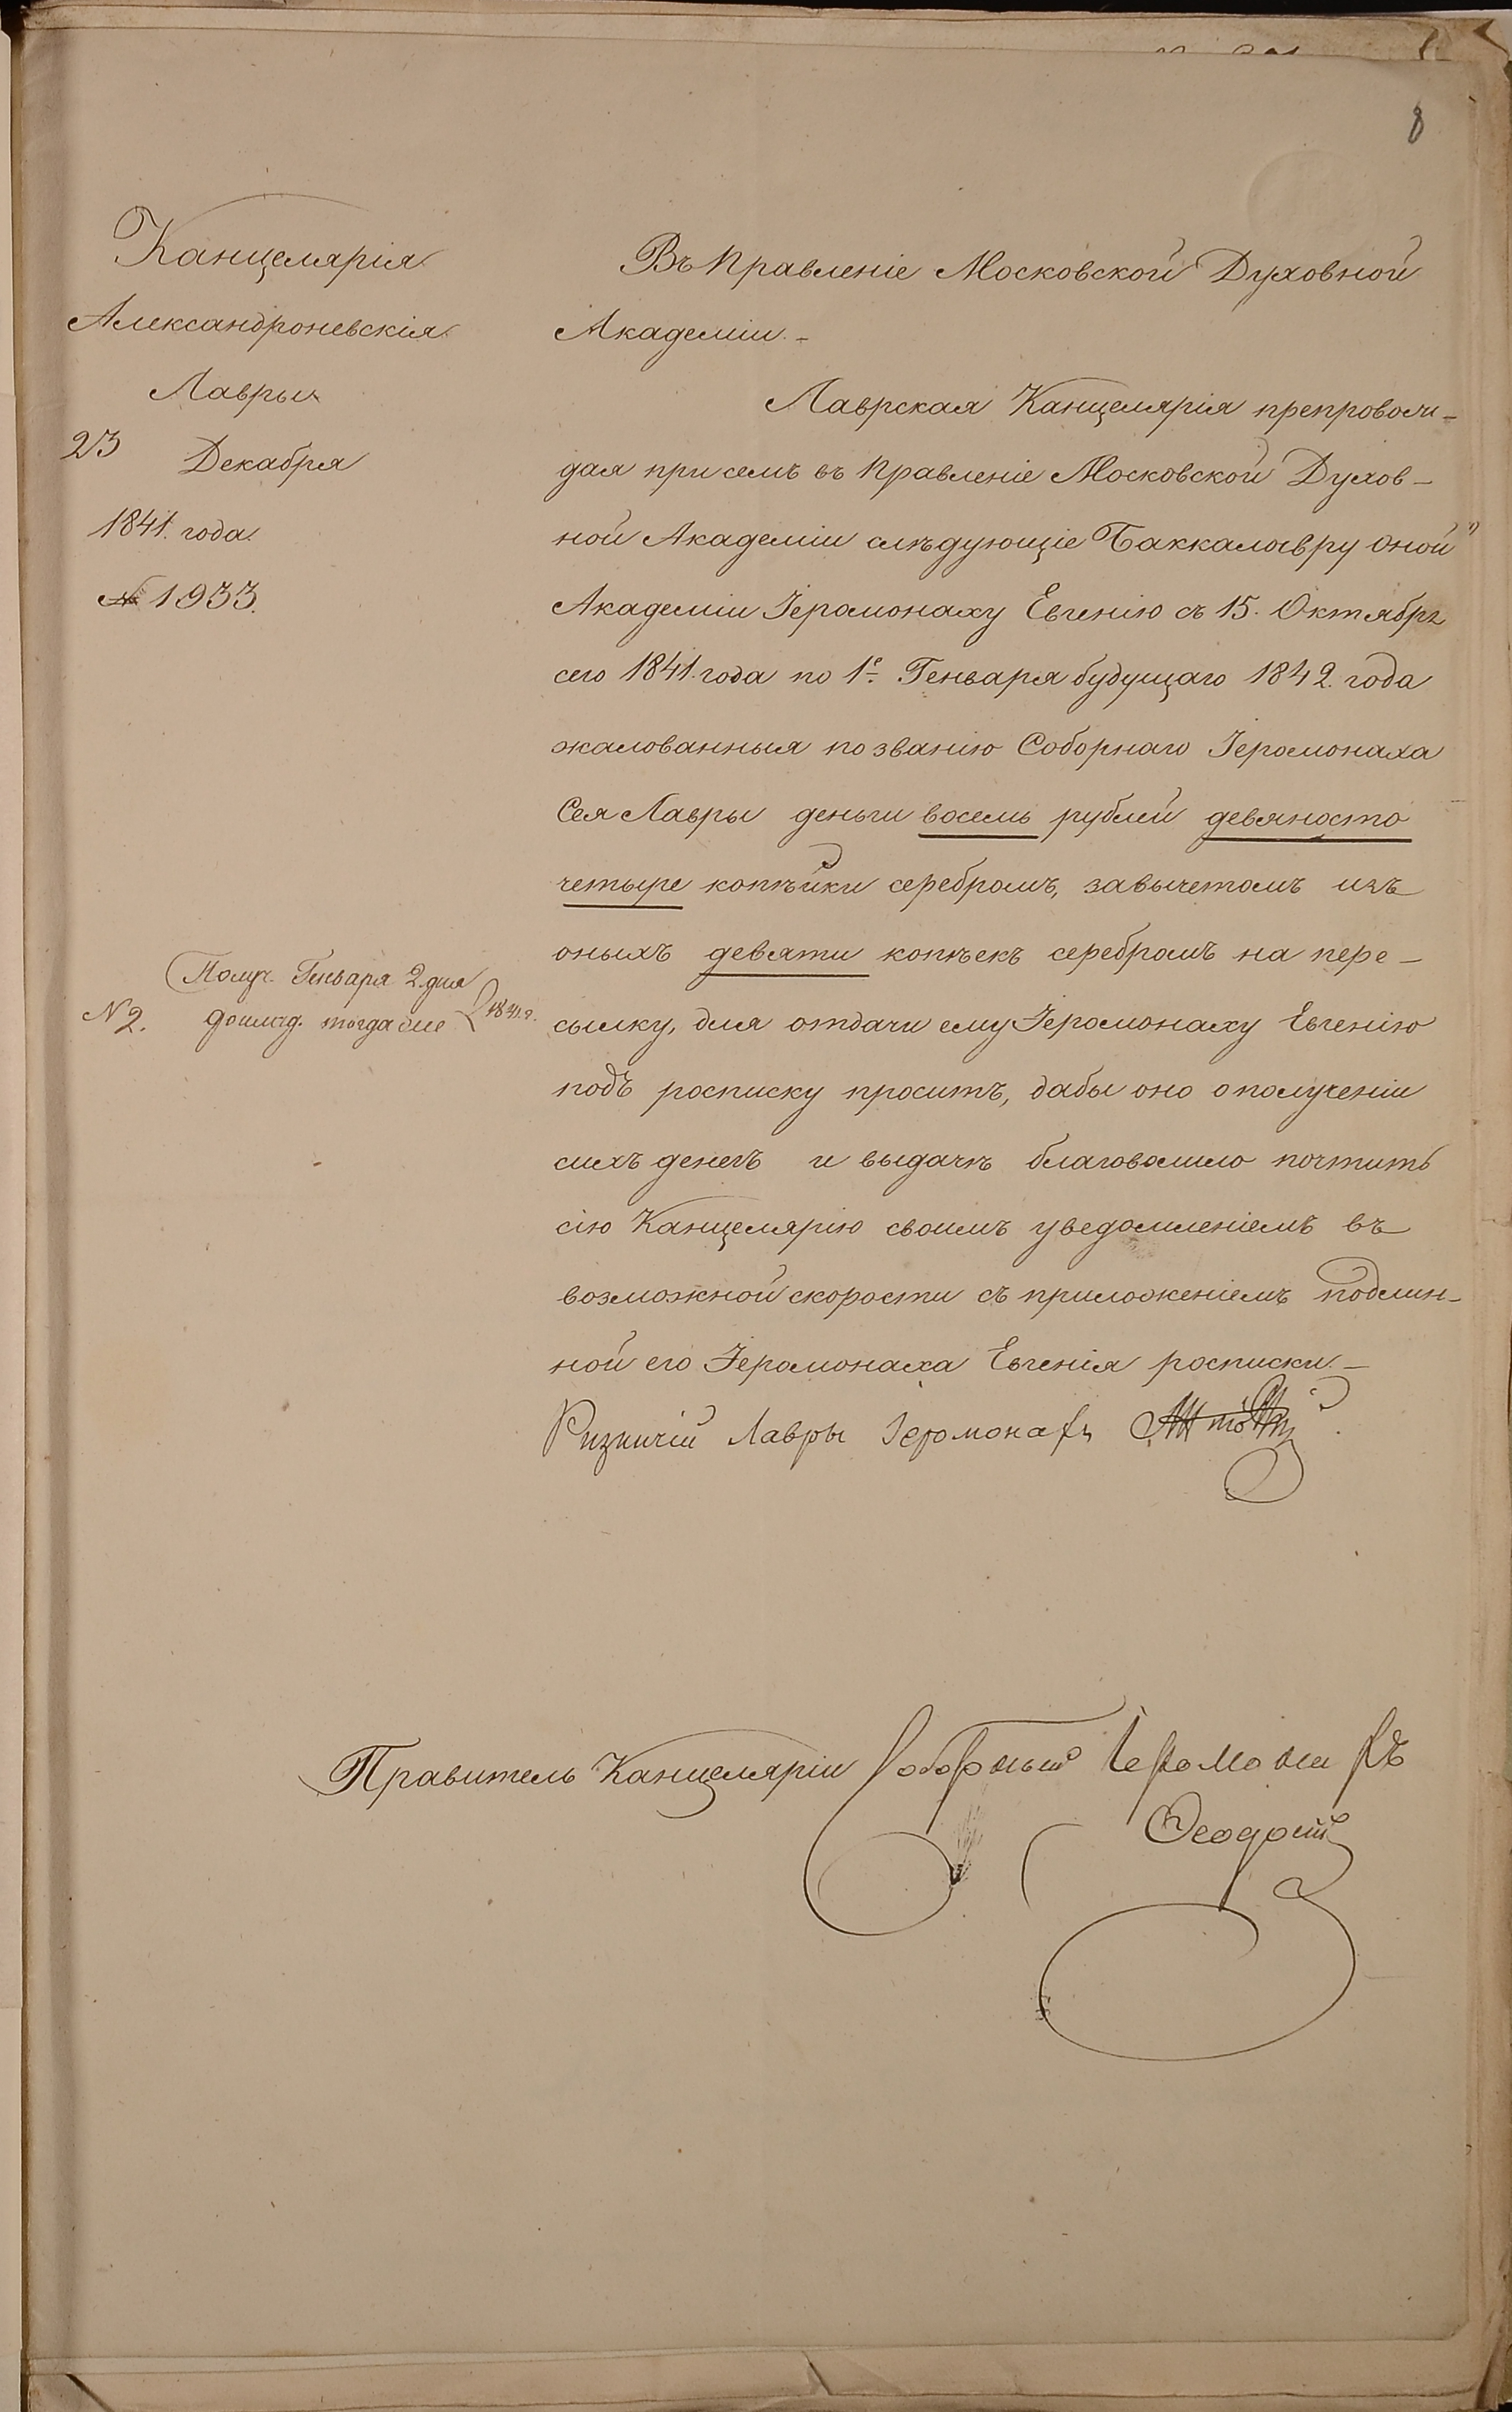 8
Канцелярія
Александроневскія
Лавры
23 Декабря
1841. года.
№ 1933.
Въ Правленіе Московской Духовной
Академіи.-
Лаврская Канцелярія препровож-
дая при семъ въ Правленіе Московской Духов-
ной Академіи слѣдующіе Баккалавру оной
Академіи Іеромонаху Евгенію съ 15. Октября
сего 1841. года по 1е Генваря будущаго 1842. года
жалованныя по званію Соборнаго Іеромонаха
Сея Лавры деньги восемь рублей девяносто
четыре копѣйки серебромъ, завычетомъ изъ
оныхъ девяти копѣекъ серебромъ на пере-
сылку, для отдачи ему Іеромонаху Евгенію
подъ росписку проситъ, дабы оно о полученіи
сихъ денегъ и выдачѣ благоволило почтить
сію Канцелярію своимъ уведомленіемъ въ
возможной скорости съ приложеніемъ подлин-
ной его Іеромонаха Евгенія росписки.-
Ризничій Лавры Іеромонахъ
Получ. Генваря 2. дня
№ 2. доклад. тогда же
Правитель Канцеляріи Соборный Іеромонахъ
Ѳеодосій